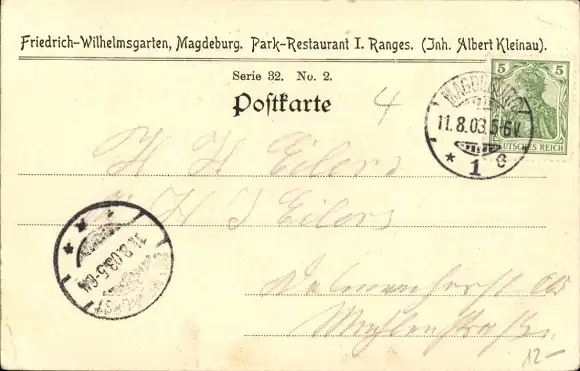 Friedrich-Wilhelmsgarten, Magdeburg. Park-Restaurant I. Ranges. (Inh. Albert Kleinau).
Serie 32. No. 2.
Postkarte
4
MAGDEBURG
11.8.03.5-6V
* 1 c
5 5
DEUTSCHES REICH
H H Eilers
H J Eilers
11.8.03.5-6N
Delmenhorst
Mühlenstraße
12-